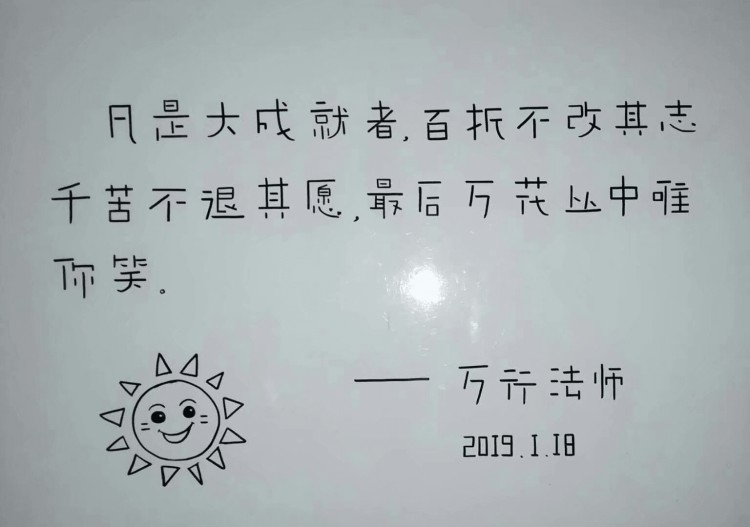 凡是大成就者,百折不改其志
千苦不退其愿,最后万花丛中唯
你笑。
—— 万行法师
2019.1.18